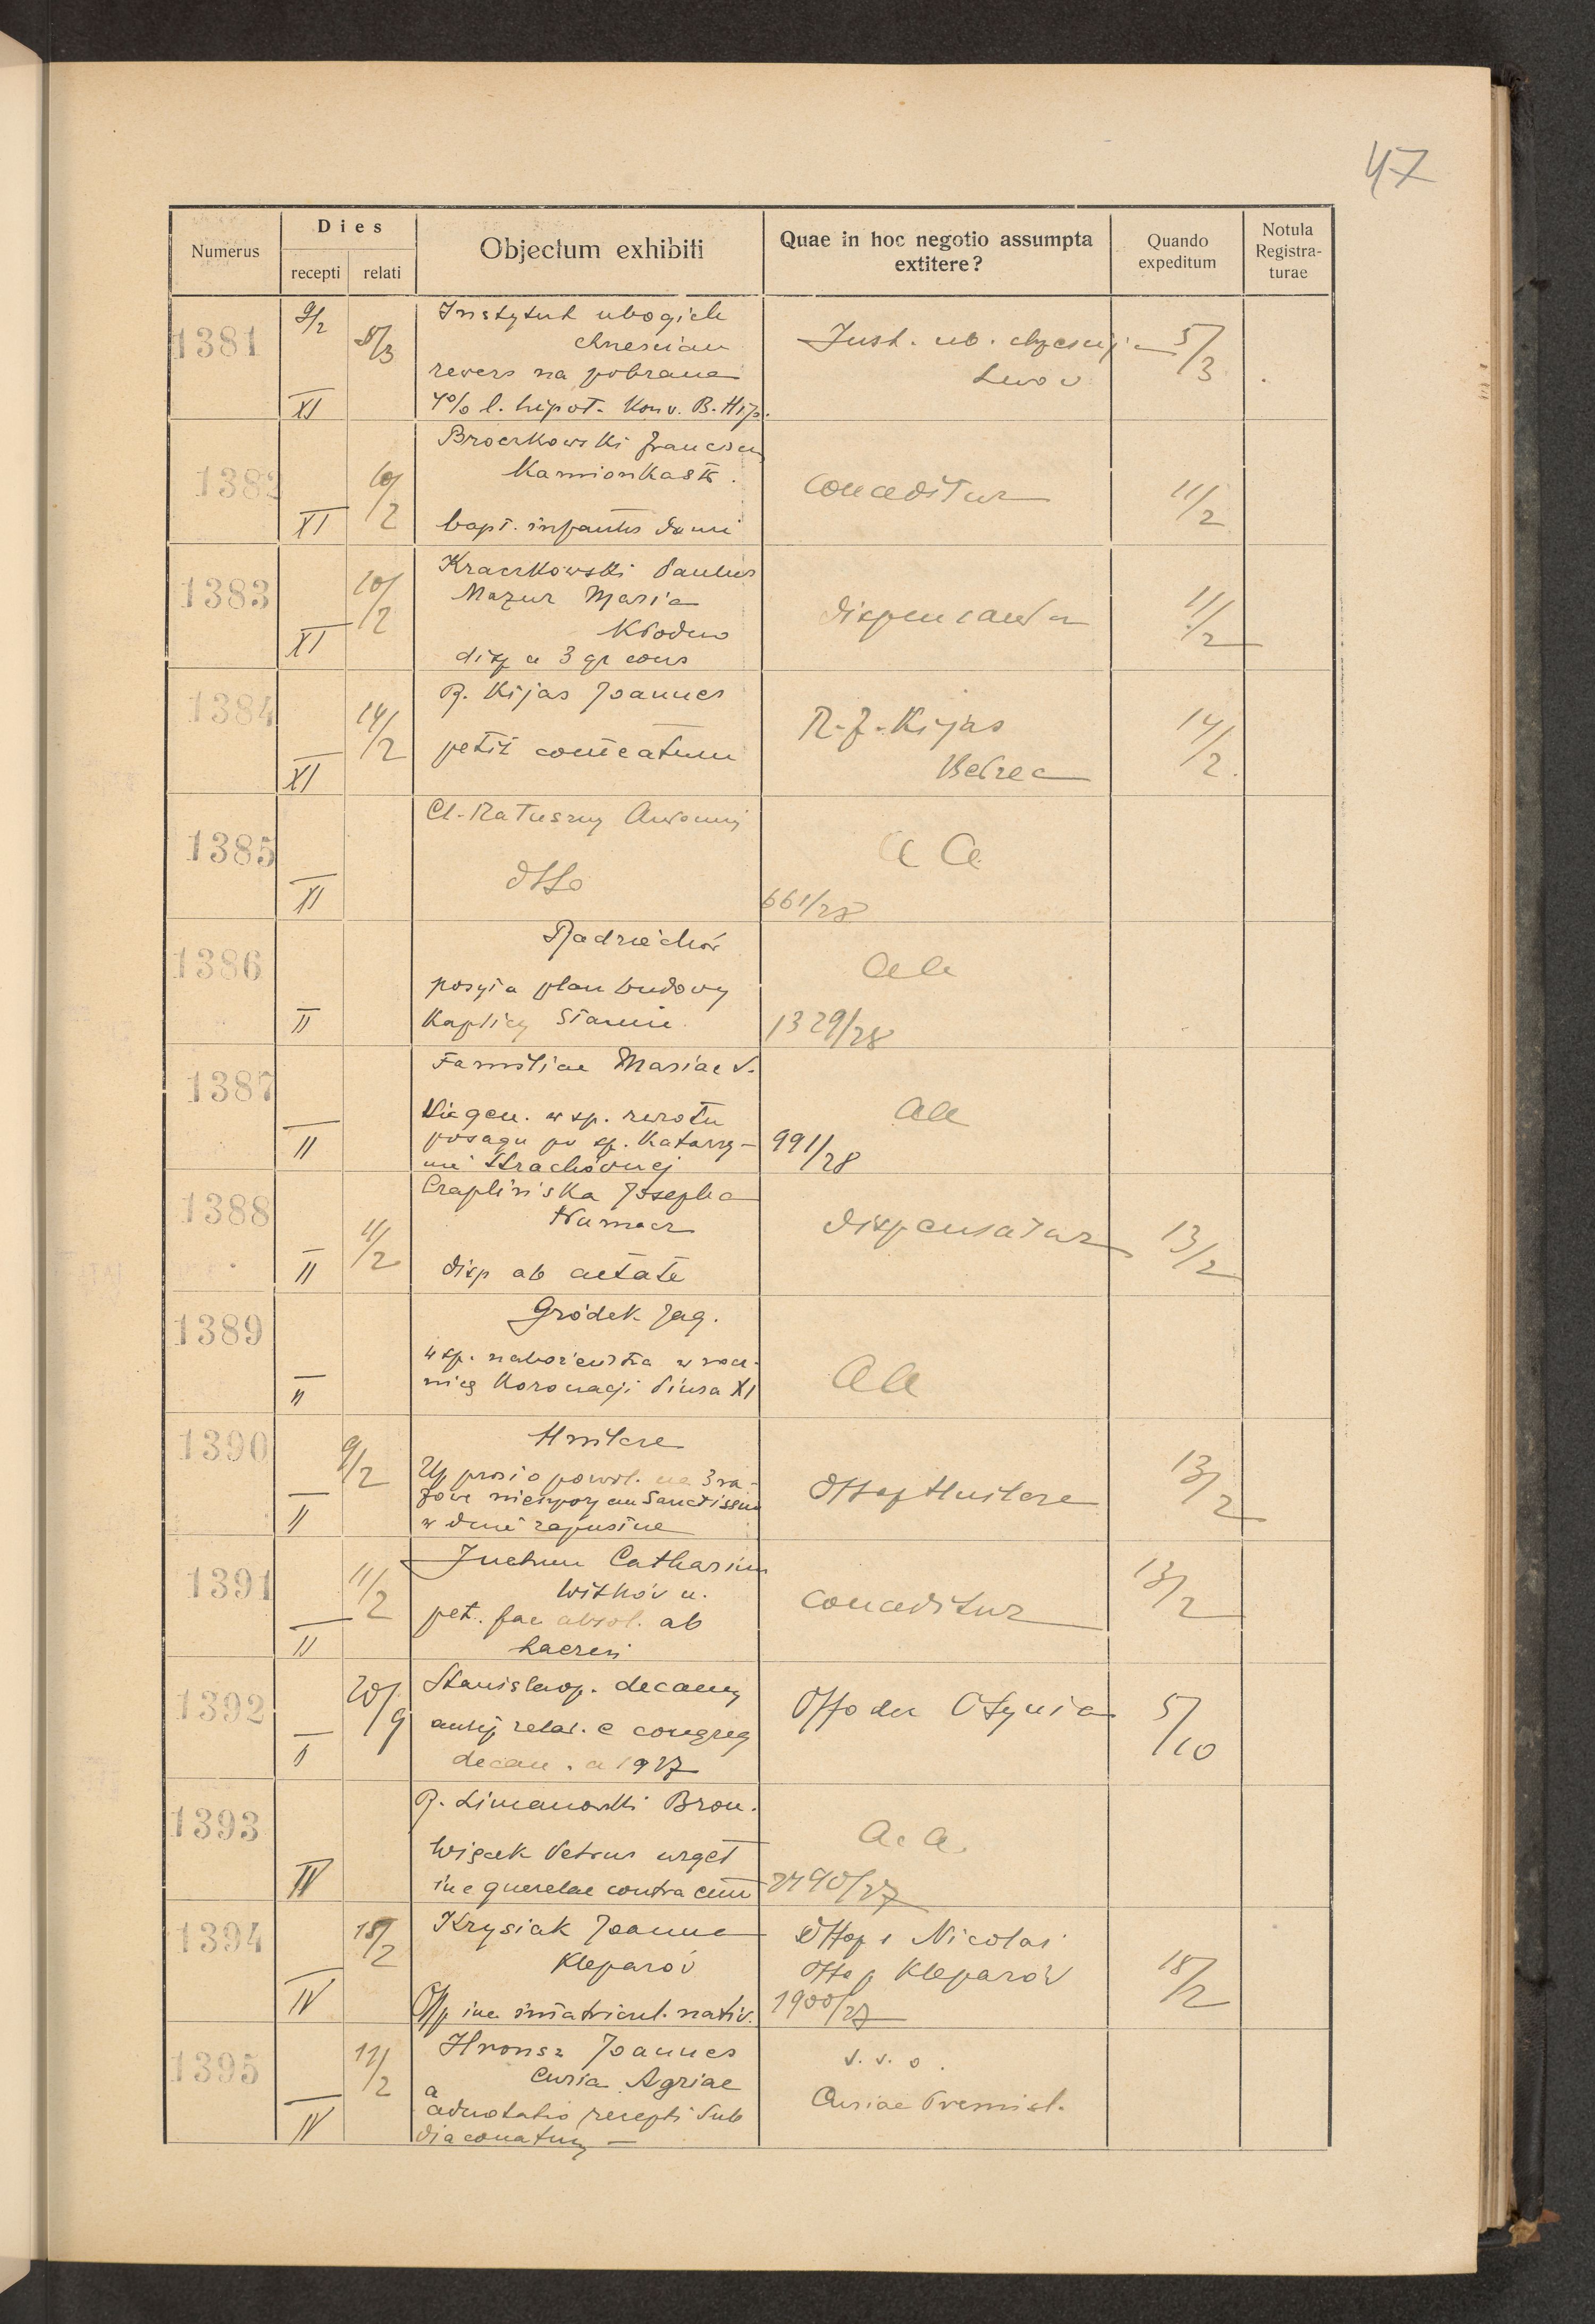 47
Numerus
Dies
recepti relati
Objectum exhibiti
Quae in hoc negotio assumpta
extitere?
Quando
expeditum
Notula
Registra-
turae
1381 9/2 5/3 Instytut ubogich
chrześcian
rewers na pobrane
XI 4% l. hipot. Konv. B. Hip.
Inst. ub.
Lwow
5/3
1382 10/2 Broczkowski
Kamionka str.
XI bapt. infantis domi
conceditur
11/2
1383 10/2 Kraczkowski Paulus
Mazur Maria
Kłodno
XI disp a 3 gr cons
11/2
1384 14/2 R. Kijas Joannes
XI petit comeatum
R. J. Kijas
Bełzec
14/2
1385 Cl. Ratuszny Antonij
XI dtto
a a
661/28
1386 Radziechów
posyła plan budowy
II Kaplicy Stanin
aa
1329/28
1387 Familiae Mariae S.
W. gen. w sp. zwrotu
II posagu po sp. Katarzy-
nie Strachównej
aa
991/28
1388 11/2 Czaplińska Josepha
II disp ab aetate
dispensatur
13/2
1389 Gródek Jag.
w sp. nabożeństwa w rocz-
II nicę Koronacji Piusa XI
aa
1390 9/2 Hnilcze
Up prosi o pozwol. na 3 ra-
zowe nieszpory cum Sanctissimo
II w dnie zapustne
Offo p Hnilcze
13/2
1391 11/2 Catharina
Witków n.
pet. fac absol. ab
II haeresi
conceditur
13/2
1392 20/9 Stanislaop. decanus
relat. e congreg
II decan. a 1927
Offo dec Otynia
5/10
1393 R. Limanowski Bron.
Wiącek Petrus urget
IV in c querelae contra eum
a. a.
2490/27
1394 18/2 Krysiak Joanna
Kleparów
IV Offp inc imatricul. nativ.
Offo p s Nicolai
Offo p Kleparów
1900/27
18/2
1395 11/2 Joannes
Curia Agriae
adnotatio recepti Sub
IV diaconatus
s. v. o.
Curiae Premisl.